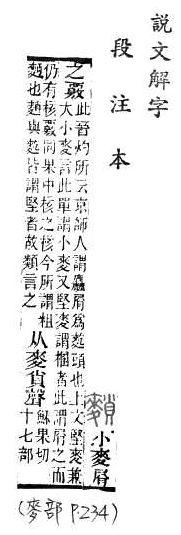 說文解字
段注本
小麥屑
之覈
此晉灼所云京師人謂麤屑爲麧頭也上文堅麥兼
大小麥言此單謂小麥又堅麥謂梱者此謂屑之而
仍有核覈同果中核之核今所謂粗
麪也麧與䴹皆謂堅者故類言之
从麥𧴪聲
穌果切
十七部
(麥部 P234)